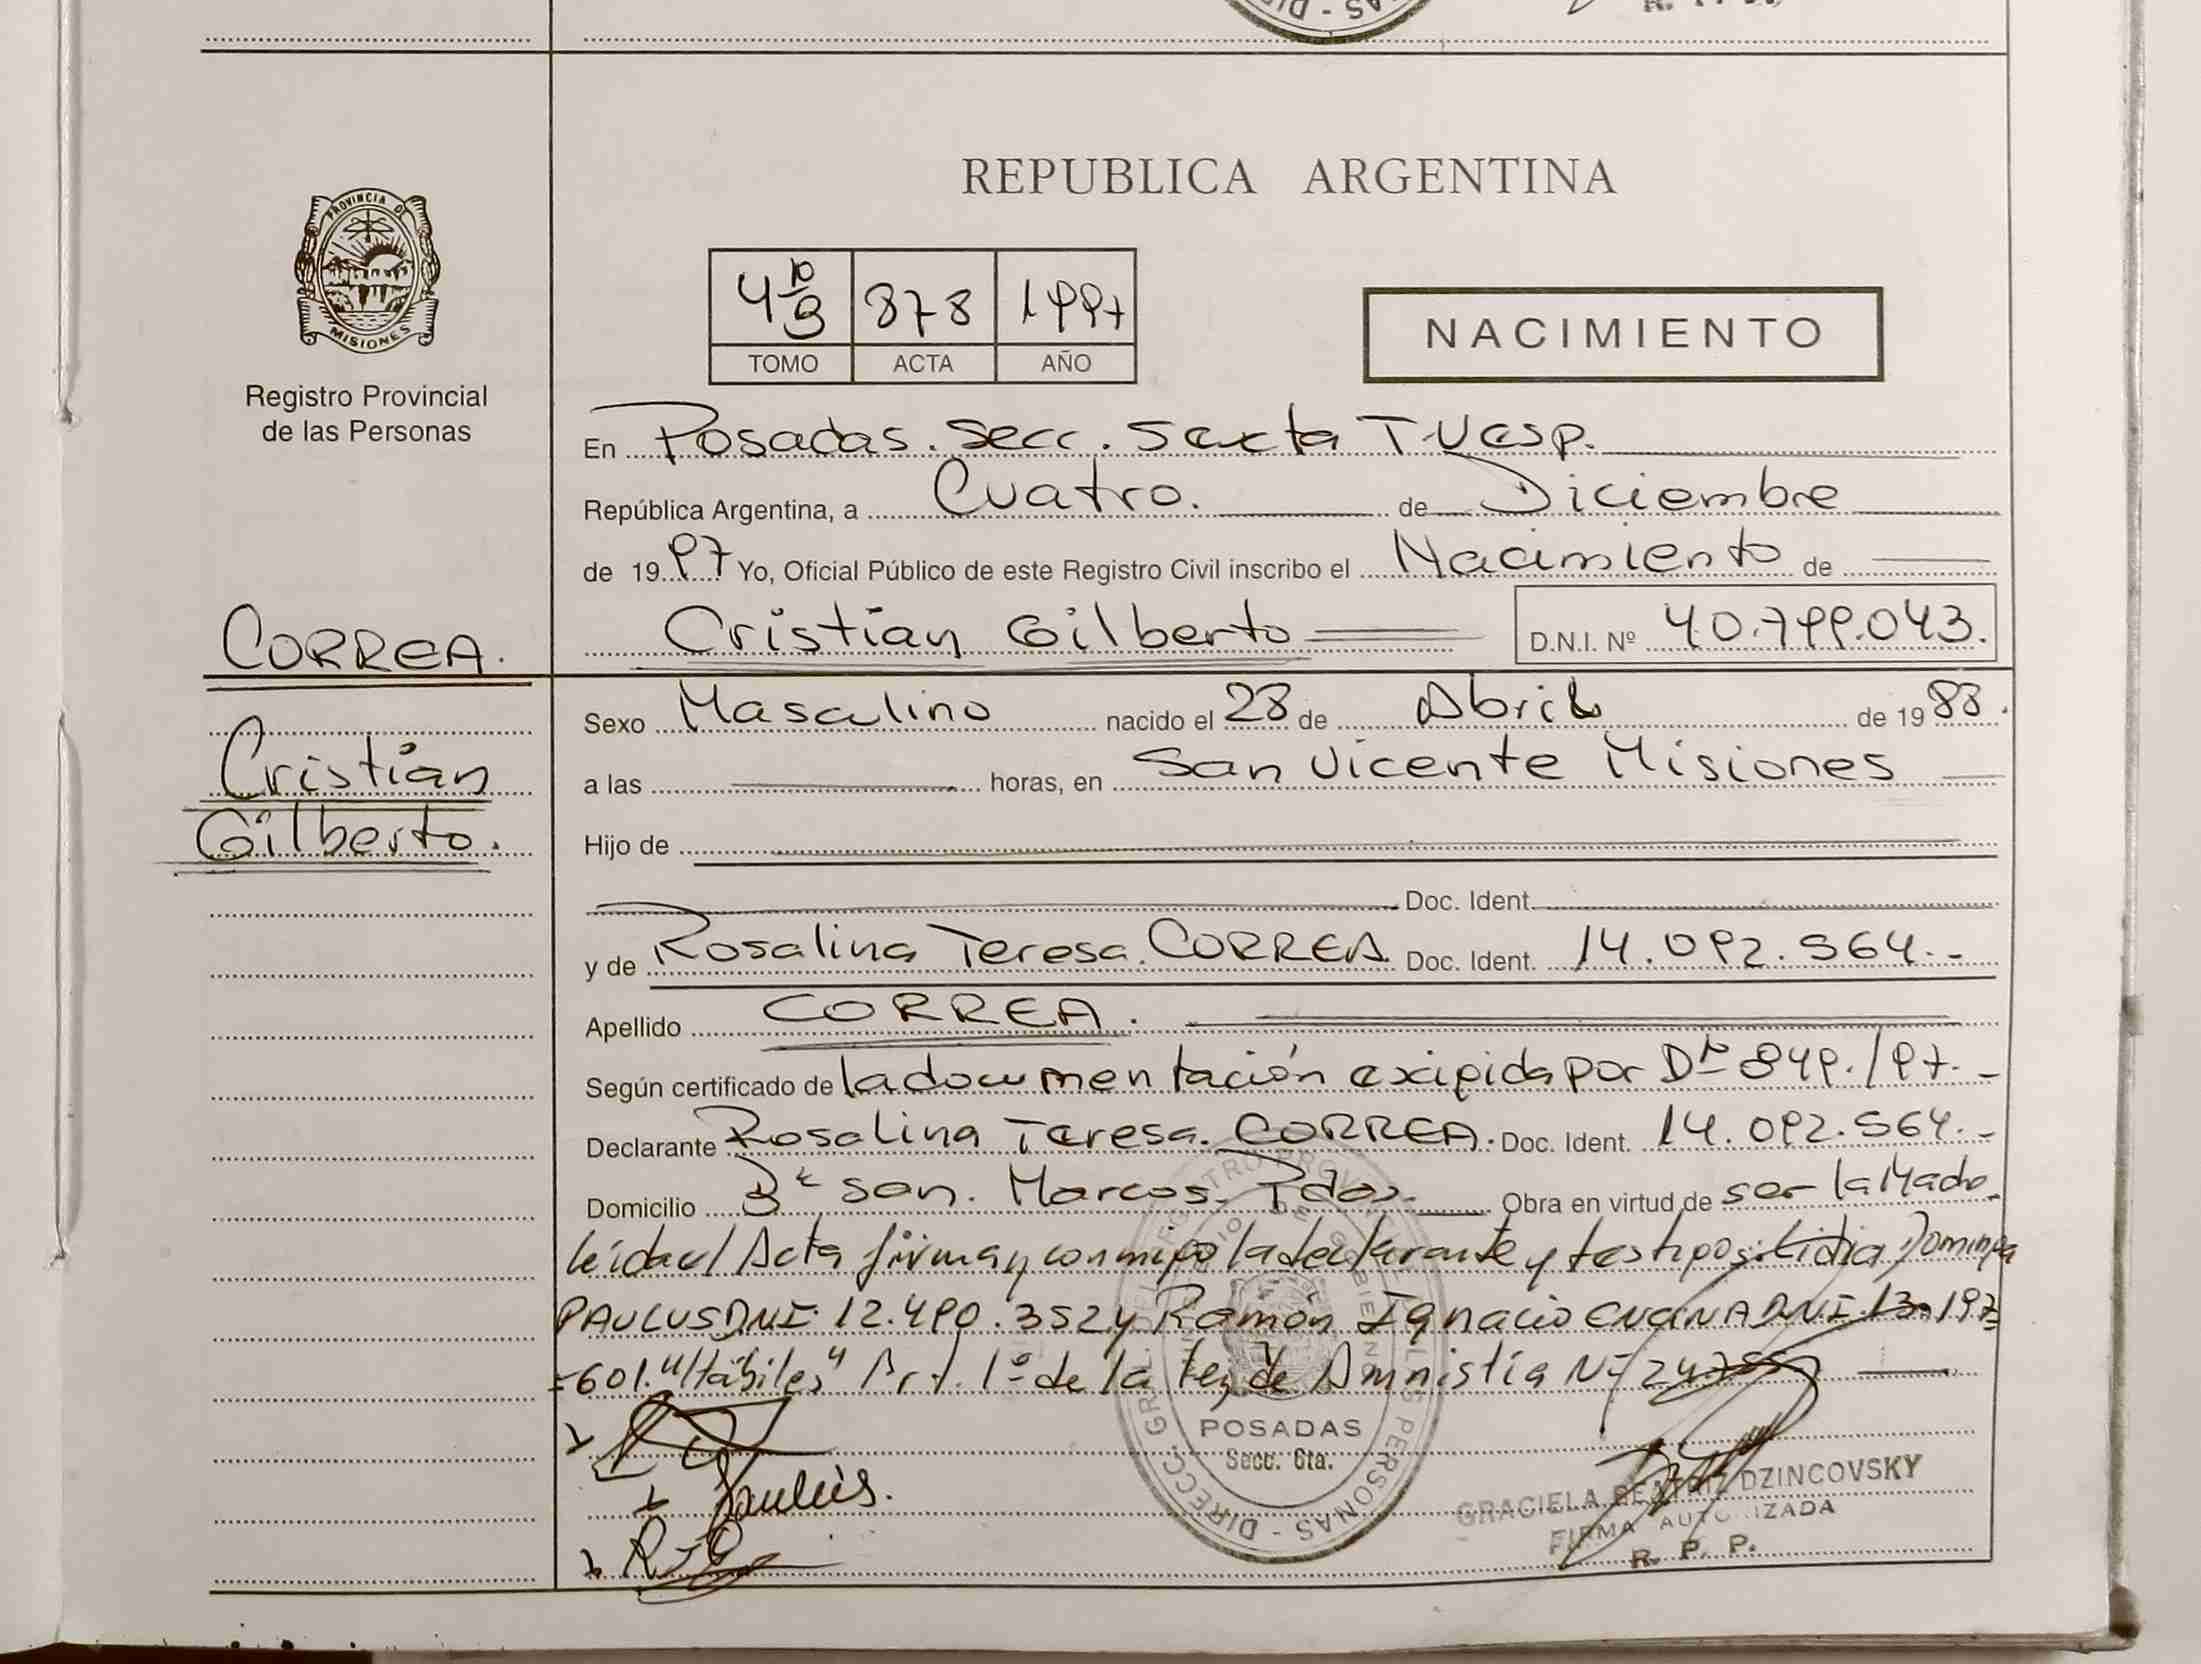 REPUBLICA ARGENTINA
PROVINCIA DE
MISIONES
Registro Provincial
de las Personas
4 10/B 878 1997
TOMO ACTA AÑO
NACIMIENTO
En Posadas. Secc. Sexta T.Vesp.
República Argentina, a Cuatro. de Diciembre
de 1997 Yo, Oficial Público de este Registro Civil inscribo el Nacimiento de
Cristian Gilberto D.N.I. Nº 40.799.043.
CORREA.
Cristian
Gilberto.
Sexo Masculino nacido el 28 de Abril de 1988.
a las horas, en San Vicente Misiones
Hijo de
Doc. Ident.
y de Rosalina Teresa. CORREA Doc. Ident. 14.092.564.-
Apellido CORREA.
Según certificado de la documentación exigida por Dto 849./97.-
Declarante Rosalina Teresa. CORREA. Doc. Ident. 14.092.564.-
Domicilio Bº San. Marcos. Pdas. Obra en virtud de ser la Madre
leída el Acta firman conmigo la declarante y testigos: Lidia Dominga
PAULUS DNI: 12.490.352 y Ramón Ignacio DNI. 13.197
=601. "Hábiles" Art. 1º de la Ley de Amnistía Nº
Paulus.
POSADAS
Secc. 6ta.
GRACIELA BEATRIZ DZINCOVSKY
FIRMA AUTORIZADA
R. P. P.